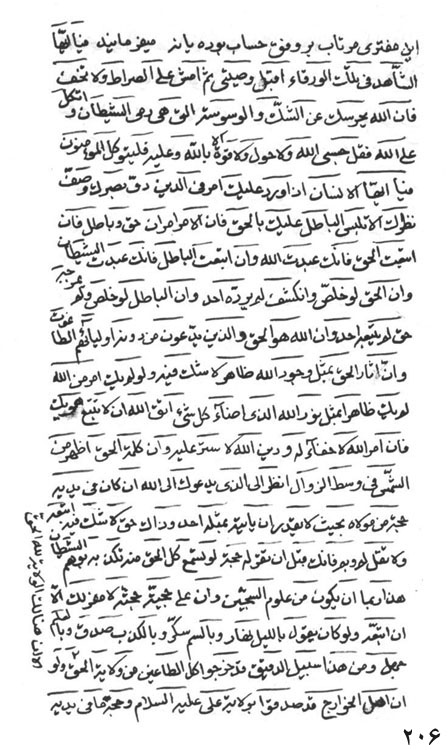 این مفتری مرتاب بر وفق حساب بوده یا نه میفرمایند فیا ایها
الشاهد فی الورقاء اقبل وصیتی ثم امش علی الصراط ولا تخف
فان الله یحرسک عن الشک والوسوسة التی هی رمی الشیطان و اتکل
علی الله فقل حسبی الله ولا حول ولا قوة الا بالله وعلیه فلیتوکل المؤمنون
فیا ایها الانسان ان اورد علیک امر فی الدین دق بصرک وصف
نظرک لا تلبس الباطل علیک بالحق فان الامر امران حق وباطل فان
اتبعت الحق فانک عبدت الله وان اتبعت الباطل فانک عبدت الشیطان
وان الحق لو خلص وانکشف لم یرده احد وان الباطل لو خلص ولم
حق لم یتبعه احد وان الله هو الحق والذین یدعون من دونه اولیائهم الطاغوت
وان اثار الحق بمثل وجود الله ظاهر لا شک فیه ولو لم یک امر من الله
لم یک ظاهرا بمثل نور الله الذی اضاء کل شیء اتق الله ان لا تتبع هویک
فان امر الله لا خفاء له ودین الله لا ستر علیه وان کلمة الحق اظهر من
الشمس فی وسط الزوال انظر الی الذی یدعوک الی الله ان کان فی یدیه
حجة من مولاه بحیث لا یقدر ان یاتی بمثله احد وذاک حق لا شک فیه اتبعه
ولا تقل لم وبم فانک قبل ان تقول لم بحجة لو تسمع کل الحق
هذا ربما ان یکون من علوم السجین وان علی حجة
ان اتبعه ولو کان یقول باللیل نهار وبالسم سکر وبالکذب صدق وبا
جمیل ومن هذا سبیل الدقیق قد خرجوا کل الطاعین من ولایة الحق ولو
ان اهل الخوارج قد صدقوا بولایة علی علیه السلام وحجة ما فی یدیه
الان هنالک الولایة لله الحق
۲۰۶